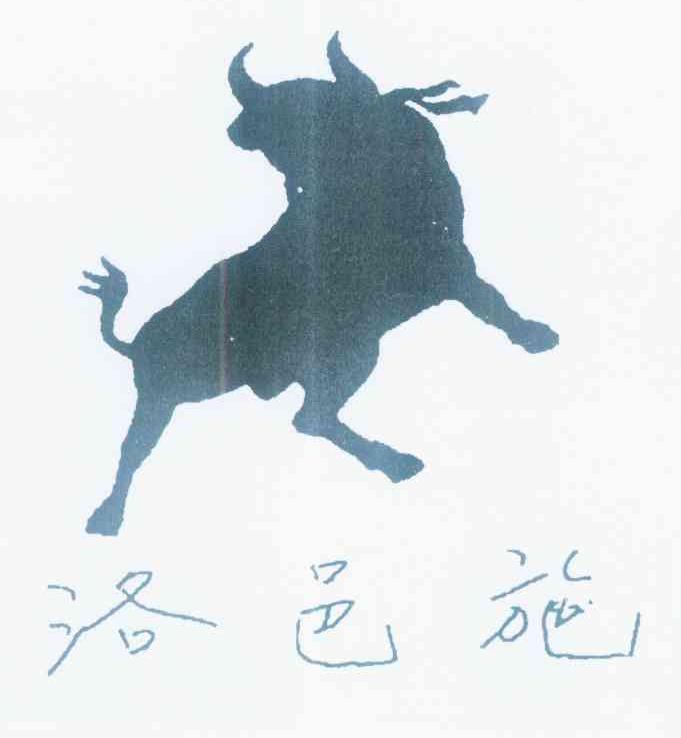 洛邑施